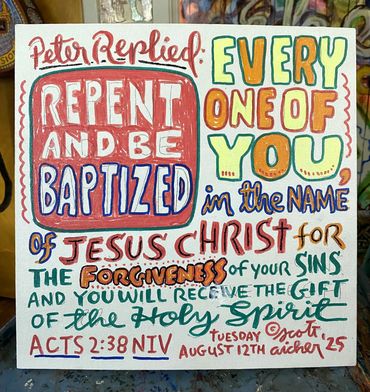 Peter Replied:
REPENT
AND BE
BAPTIZED
EVERY
ONE OF
YOU,
in the NAME
of JESUS CHRIST for
THE FORGIVENESS of your SINS
AND YOU WILL RECEIVE THE GIFT
OF the Holy Spirit
ACTS 2:38 NIV
TUESDAY
AUGUST 12TH
©scott
aicher '25